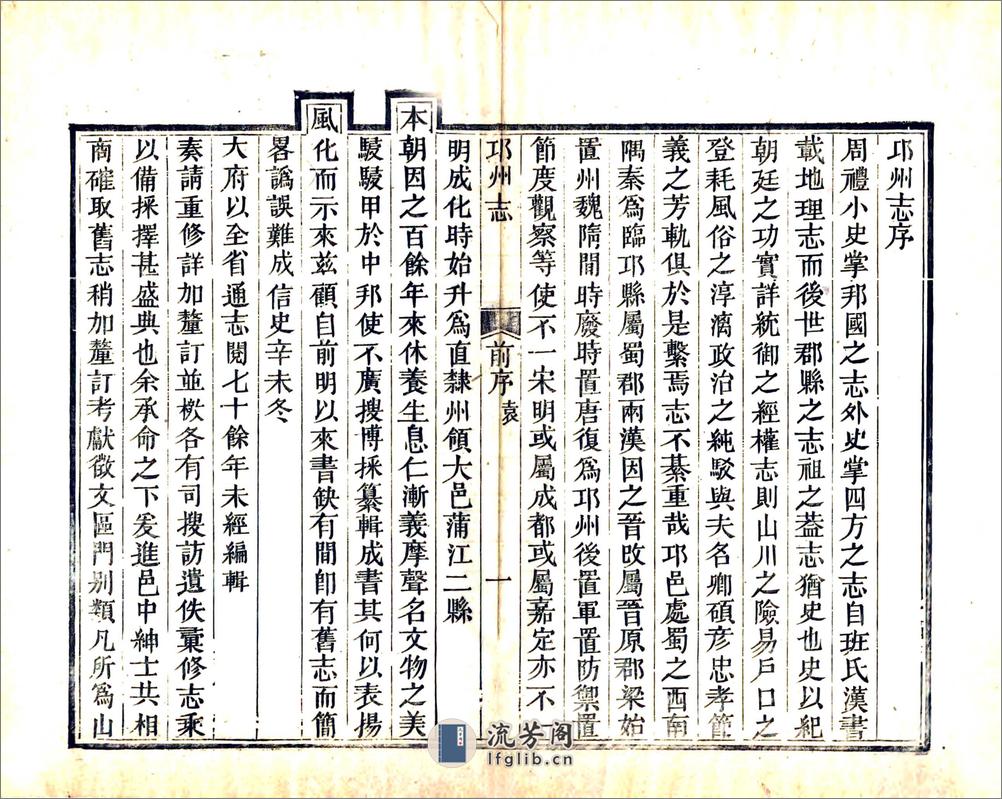 邛州志序
周禮小史掌邦國之志外史掌四方之志自班氏漢書
載地理志而後世郡縣之志祖之葢志猶史也史以紀
朝廷之功實詳統御之經權志則山川之險易戶口之
登耗風俗之淳漓政治之純駁與夫名卿碩彥忠孝節
義之芳軌俱於是繫焉志不綦重哉邛邑處蜀之西南
隅秦爲臨邛縣屬蜀郡兩漢因之晉改屬晉原郡梁始
置州魏隋間時廢時置唐復爲邛州後置軍置防禦置
節度觀察等使不一宋明或屬成都或屬嘉定亦不一
邛州志
前序 袁
一
明成化時始升爲直隸州領大邑蒲江二縣
本朝因之百餘年來休養生息仁漸義摩聲名文物之美
駸駸甲於中邦使不廣搜博採纂輯成書其何以表揚
風化而示來茲顧自前明以來書缺有間卽有舊志而簡
畧譌誤難成信史辛未冬
大府以全省通志閱七十餘年未經編輯
奏請重修詳加釐訂並檄各有司搜訪遺佚彙修志乘
以備採擇甚盛典也余承命之下爰進邑中紳士共相
商確取舊志稍加釐訂考獻徵文區門别類凡所爲山
流芳阁
lfglib.cn